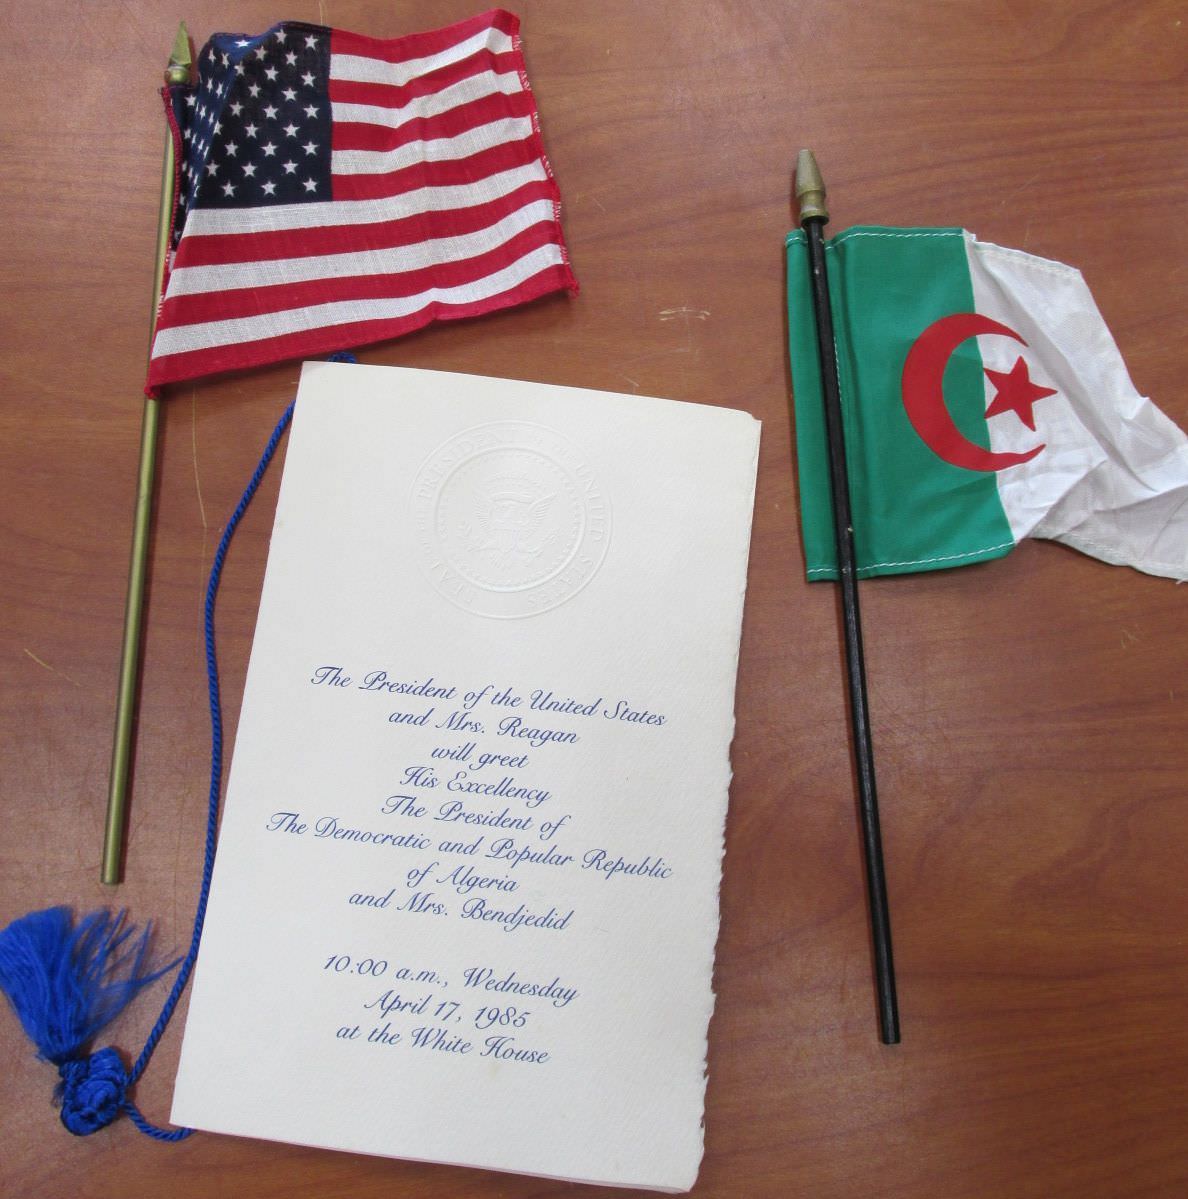 SEAL OF THE PRESIDENT OF THE UNITED STATES
The President of the United States
and Mrs. Reagan
will greet
His Excellency
The President of
The Democratic and Popular Republic
of Algeria
and Mrs. Bendjedid
10:00 a.m., Wednesday
April 17, 1985
at the White House